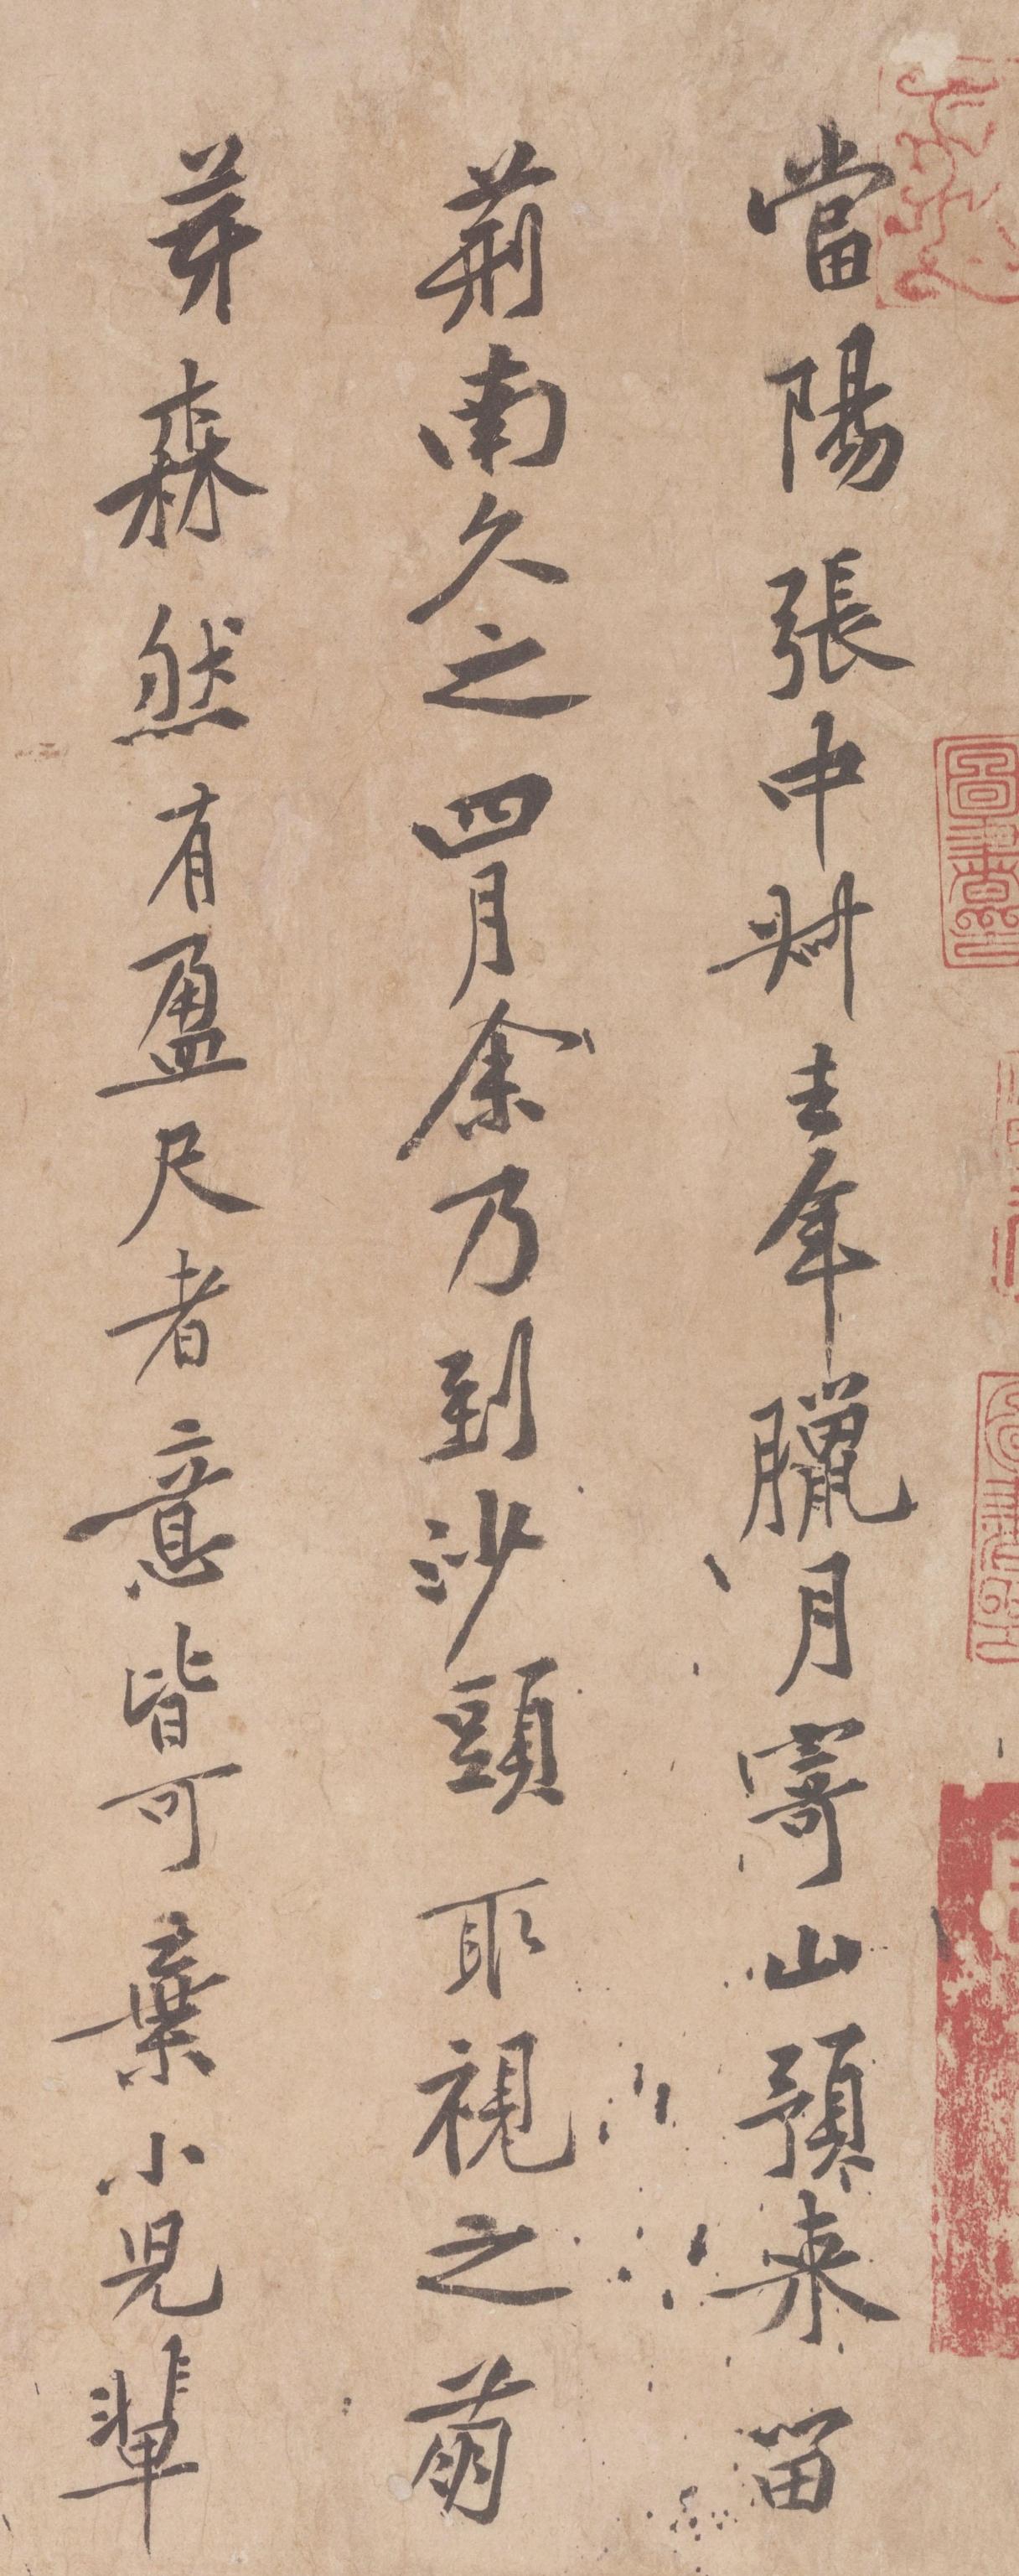 當陽張中叔去年臘月寄山預来留
荊南久之四月余乃到沙頭取視之萌
芽森然有盈尺者意皆可棄小兒輩